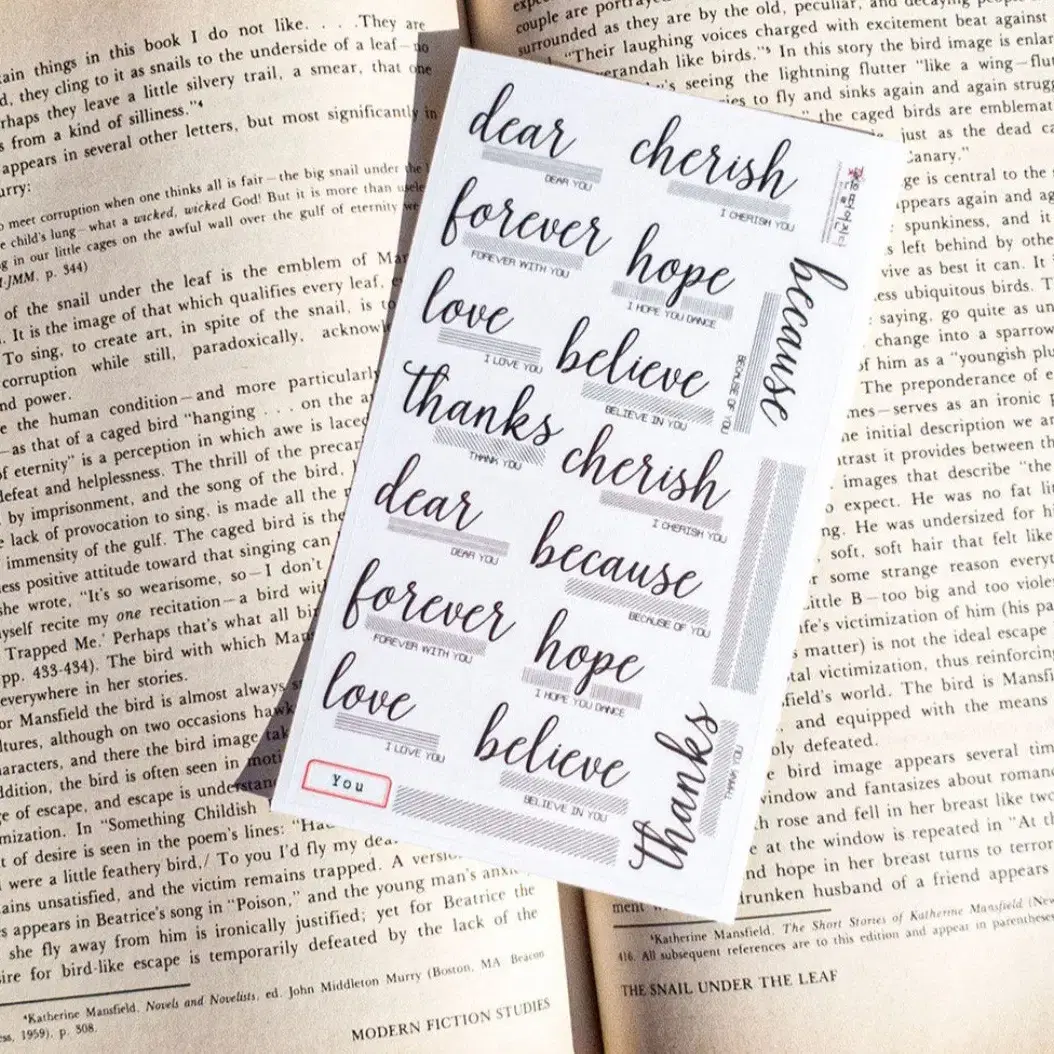 tain things in this book I do not like. . . .They are
d, they cling to it as snails to the underside of a leaf—no
rhaps they leave a little silvery trail, a smear, that one
s from a kind of silliness."⁴
appears in several other letters, but most significantly in
urry:
meet corruption when one thinks all is fair—the big snail under the
e child's lung—what a wicked, wicked God! But it is more than
g in our little cages on the awful wall over the gulf of eternity we
JMM, p. 344)
of the snail under the leaf is the emblem of
. It is the image of that which qualifies every leaf,
To sing, to create art, in spite of the snail, is to
corruption while still, paradoxically,
nd power.
e the human condition—and more particularly
—as that of a caged bird "hanging . . . on the
of eternity" is a perception in which awe is laced
defeat and helplessness. The thrill of the
by imprisonment, and the song of the bird,
e lack of provocation to sing, is made all the
immensity of the gulf. The caged bird is the
ess positive attitude toward that singing can
she wrote, "It's so wearisome, so—I don't
yself recite my one recitation—a bird with
Trapped Me.' Perhaps that's what all
pp. 433-434). The bird with which
everywhere in her stories.
or Mansfield the bird is almost always
ltures, although on two occasions
aracters, and there the bird image
ddition, the bird is often seen in
ge of escape, and escape is
mization. In "Something Childish
t of desire is seen in the poem's lines:
were a little feathery bird,/ To you I'd fly my
ains unsatisfied, and the victim remains trapped. A
s appears in Beatrice's song in "Poison," and the young man's
she fly away from him is ironically justified; yet for Beatrice the
ire for bird-like escape is temporarily defeated by the lack of the
⁴Katherine Mansfield, Novels and Novelists, ed. John Middleton Murry (Boston, MA Beacon
ess, 1959), p. 308.
MODERN FICTION STUDIES
dear
DEAR YOU
cherish
I CHERISH YOU
forever
FOREVER WITH YOU
hope
I HOPE YOU DANCE
because
BECAUSE OF YOU
love
I LOVE YOU
believe
BELIEVE IN YOU
thanks
THANK YOU
cherish
I CHERISH YOU
dear
DEAR YOU
because
BECAUSE OF YOU
forever
FOREVER WITH YOU
hope
I HOPE YOU DANCE
love
I LOVE YOU
believe
BELIEVE IN YOU
thanks
THANK YOU
You
couple are portrayed
surrounded as they are by the old, peculiar, and decaying
"Their laughing voices charged with excitement beat against
verandah like birds."⁵ In this story the bird image is
seeing the lightning flutter "like a wing—
to fly and sinks again and again
the caged birds are
just as the dead
Canary."
ge is central to the
appears again and
spunkiness, and it
left behind by
vive as best it can. It
ess ubiquitous birds.
saying, go quite as
change into a sparrow
of him as a "youngish
The preponderance of
mes—serves as an ironic
he initial description we
trast it provides between
images that describe "the
expect. He was no fat
ng. He was undersized for
soft, soft hair that felt like
some strange reason
Little B—too big and too
ife's victimization of him (his
matter) is not the ideal escape
tal victimization, thus
field's world. The bird is
and equipped with the means
bly defeated.
bird image appears several
window and fantasizes about
h rose and fell in her breast like
e at the window is repeated in "At
nd hope in her breast turns to terror
drunken husband of a friend appears
⁵Katherine Mansfield, The Short Stories of Katherine Mansfield
416. All subsequent references are to this edition and appear in
THE SNAIL UNDER THE LEAF